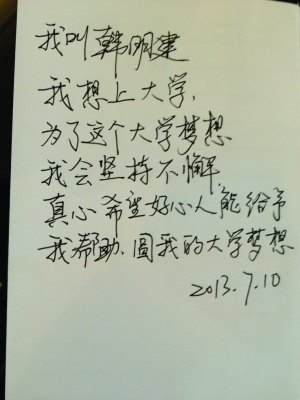 我叫韩明建
我想上大学,
为了这个大学梦想
我会坚持不懈
真心希望好心人能给予
我帮助,圆我的大学梦想
2013.7.10